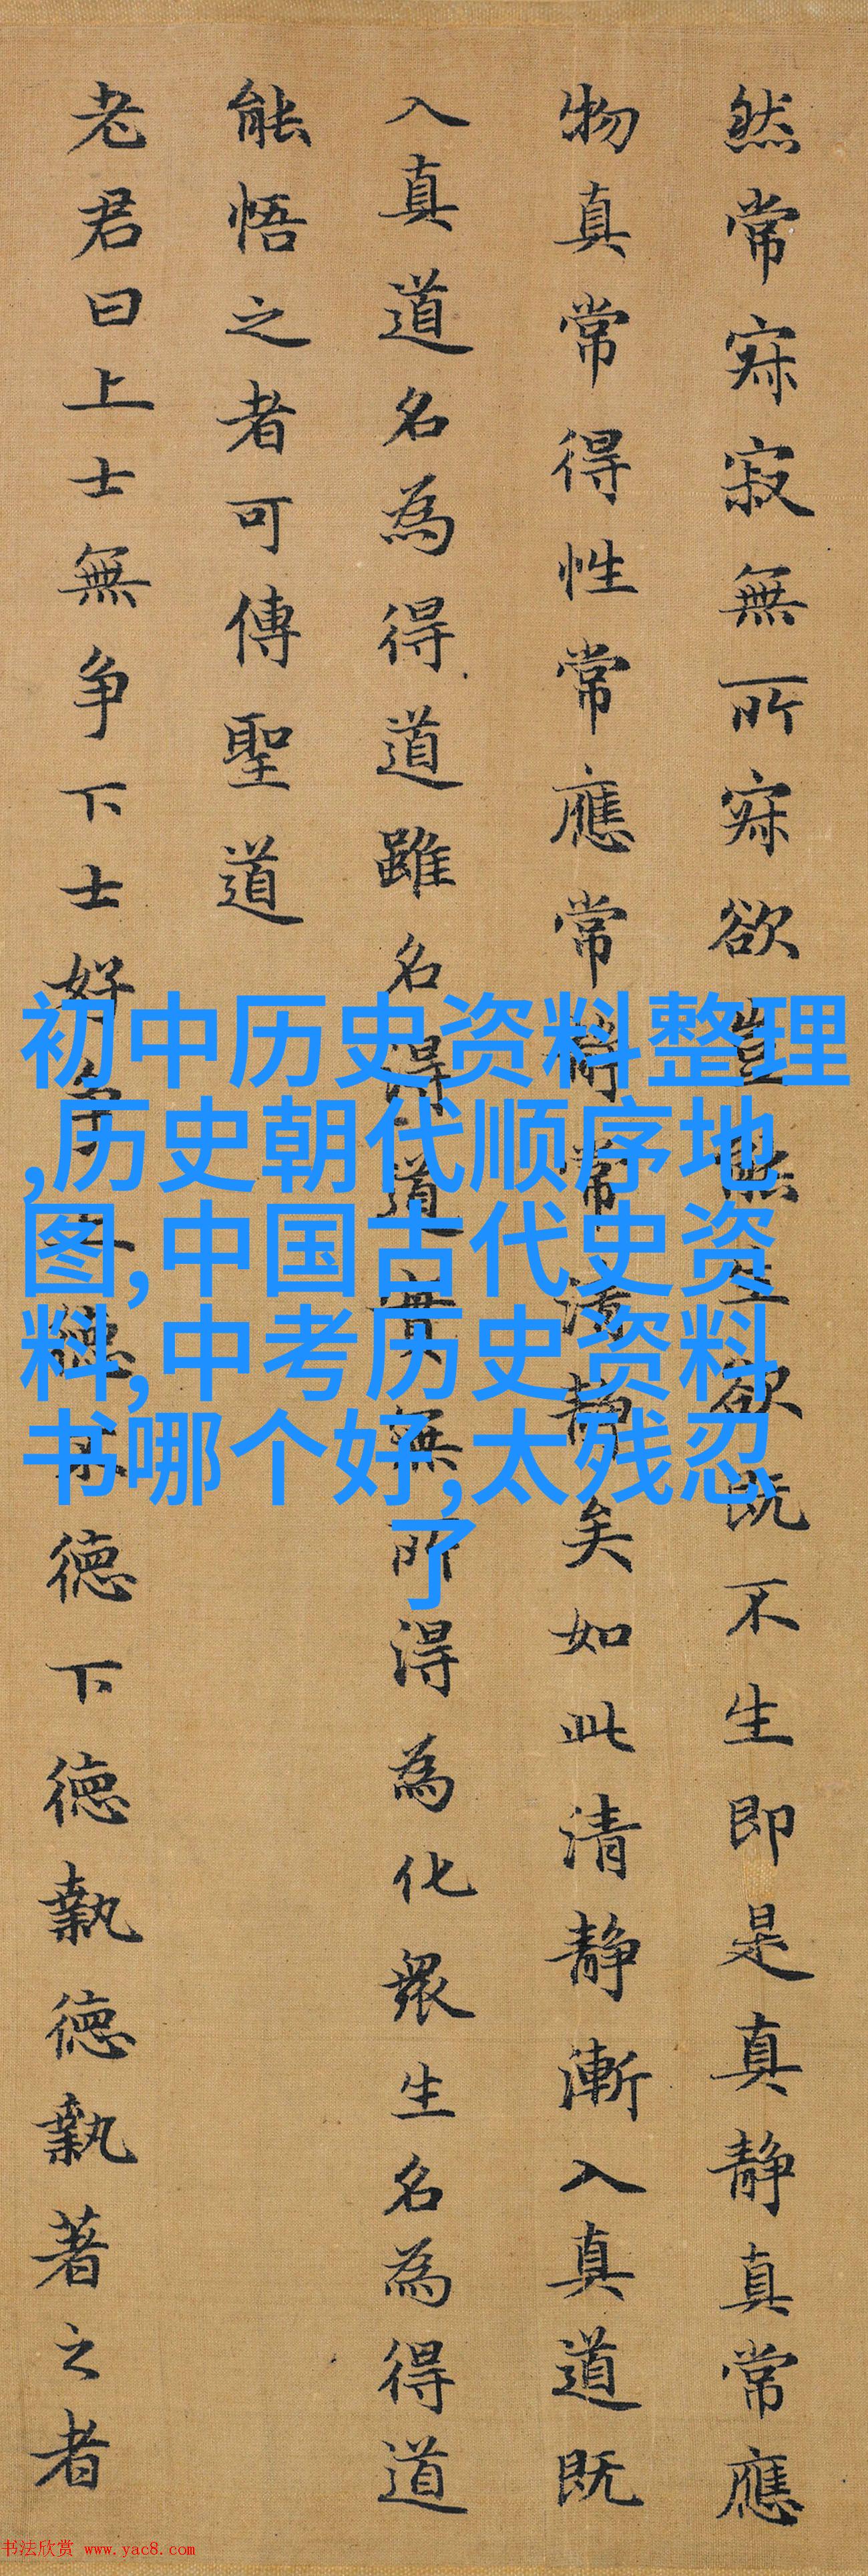 然常寂寂無所寂欲豈無生欲既不生即是真静真常應
物真常得性常應常常清静矣如此清静漸入真道既
入真道名為得道雖名得道實無所得為化衆生名為得道
能悟之者可傳聖道
老君曰上士無争下士好争德德下德執德執著之者
初中历史资料整理
,历史朝代顺序地
图,中国古代史资
料,中考历史资料
书哪个好,太残忍
了
书法欣赏 www.yac8.com